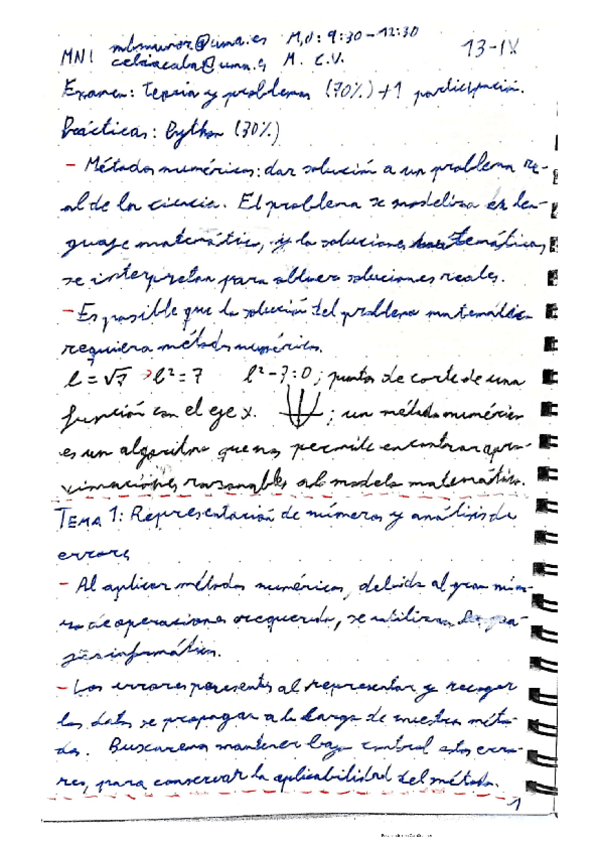 MNI mbmunoz@uma.es M,J: 9:30-12:30 13-IX
celiacala@uma.es M. C.V.
Examen: Teoría y problemas (70%) +1 participación.
Prácticas: Python (30%)
- Métodos numéricos: dar solución a un problema re-
al de la ciencia. El problema se modeliza en len-
guaje matemático, y la soluciones matemáticas
se interpretan para obtener soluciones reales.
- Es posible que la solución del problema matemático
requiera métodos numéricos.
l = √7 → l² = 7 l² - 7 = 0; puntos de corte de una
función con el eje x. ; un método numérico
es un algoritmo que nos permite encontrar apro-
ximaciones razonables al modelo matemático.
TEMA 1: Representación de números y análisis de
errores
- Al aplicar métodos numéricos, debido al gran núme-
ro de operaciones requerido, se utilizan lengua-
jes informáticos.
- Los errores presentes al representar y recoger
los datos se propagan a lo largo de nuestro méto-
do. Buscaremos mantener bajo control estos erro-
res, para conservar la aplicabilidad del método.
1